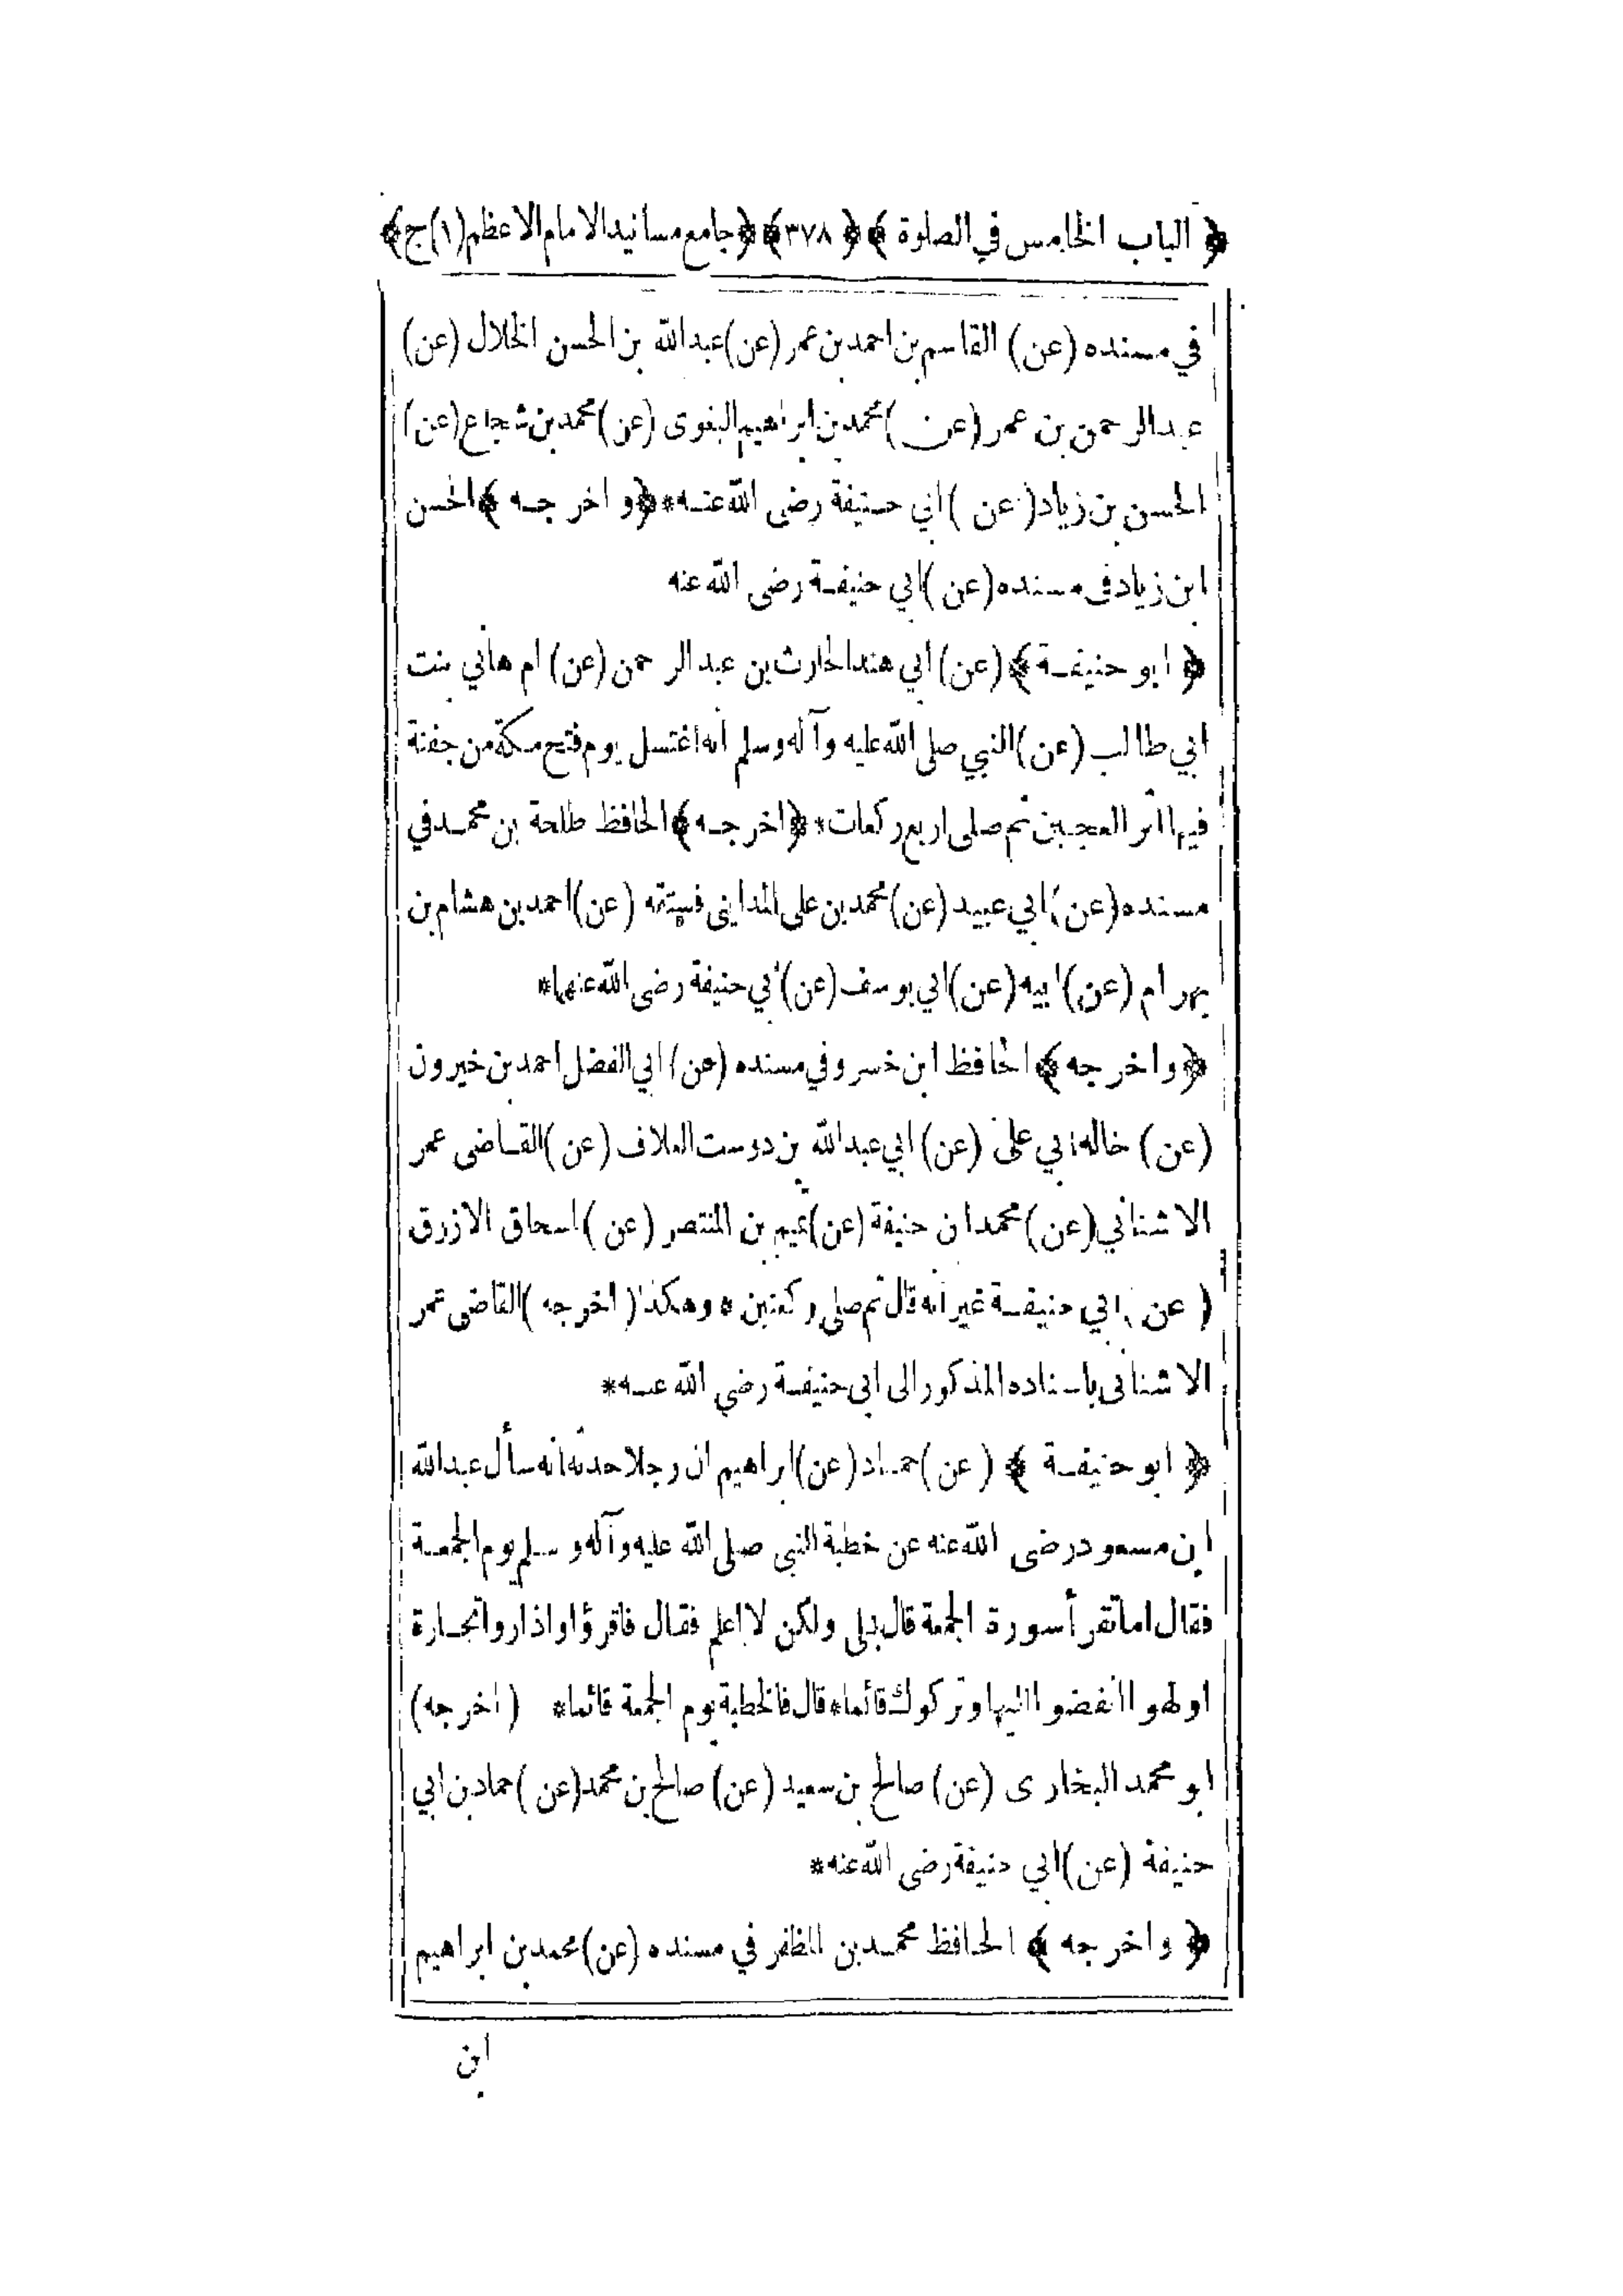 ﴿ الباب الخامس في الصلوة ﴾ ﴿ ٣٧٨ ﴾ ﴿ جامع مسانيد الامام الاعظم (١) ج ﴾
في مسنده (عن) القاسم بن احمد بن عمر (عن) عبد الله بن الحسن الخلال (عن)
عبد الرحمن بن عمر (عن) محمد بن ابراهيم البغوى (عن) محمد بن شجاع (عن)
الحسن بن زياد (عن) ابي حنيفة رضى الله عنه * ﴿ واخرجه ﴾ الحسن
ابن زياد في مسنده (عن) ابي حنيفة رضى الله عنه
﴿ ابو حنيفة ﴾ (عن) ابي هند الحارث بن عبد الرحمن (عن) ام هاني بنت
ابي طالب (عن) النبي صلى الله عليه وآله وسلم انه اغتسل يوم فتح مكة من جفنة
فيها اثر العجين ثم صلى اربع ركعات * ﴿ اخرجه ﴾ الحافظ طلحة بن محمد في
مسنده (عن) ابي عبيد (عن) محمد بن على المدايني (عن) احمد بن هشام بن
بهرام (عن) ابيه (عن) ابي يوسف (عن) ابي حنيفة رضى الله عنهما *
﴿ واخرجه ﴾ الحافظ ابن خسرو في مسنده (عن) ابي الفضل احمد بن خيرون
(عن) خاله ابي على (عن) ابي عبد الله بن دوست العلاف (عن) القاضى عمر
الاشناني (عن) محمد ان حنيفة (عن) تميم بن المنتصر (عن) اسحاق الازرق
(عن) ابي حنيفة غير انه قال ثم صلى ركعتين * وهكذا (اخرجه) القاضى عمر
الاشنانى باسناده المذكور الى ابى حنيفة رضي الله عنه *
﴿ ابو حنيفة ﴾ (عن) حماد (عن) ابراهيم ان رجلا حدثه انه سأل عبد الله
ابن مسعود رضى الله عنه عن خطبة النبي صلى الله عليه وآله وسلم يوم الجمعة
فقال اما تقرأ سورة الجمعة قال بلى ولكن لا اعلم فقال فاقرؤا واذا رأوا تجارة
او لهوا انفضوا اليها وتركوك قائما * قال فالخطبة يوم الجمعة قائما * (اخرجه)
ابو محمد البخارى (عن) صالح بن سعيد (عن) صالح بن محمد (عن) حماد بن ابي
حنيفة (عن) ابي حنيفة رضى الله عنه *
﴿ واخرجه ﴾ الحافظ محمد بن المظفر في مسنده (عن) محمد بن ابراهيم
ابن